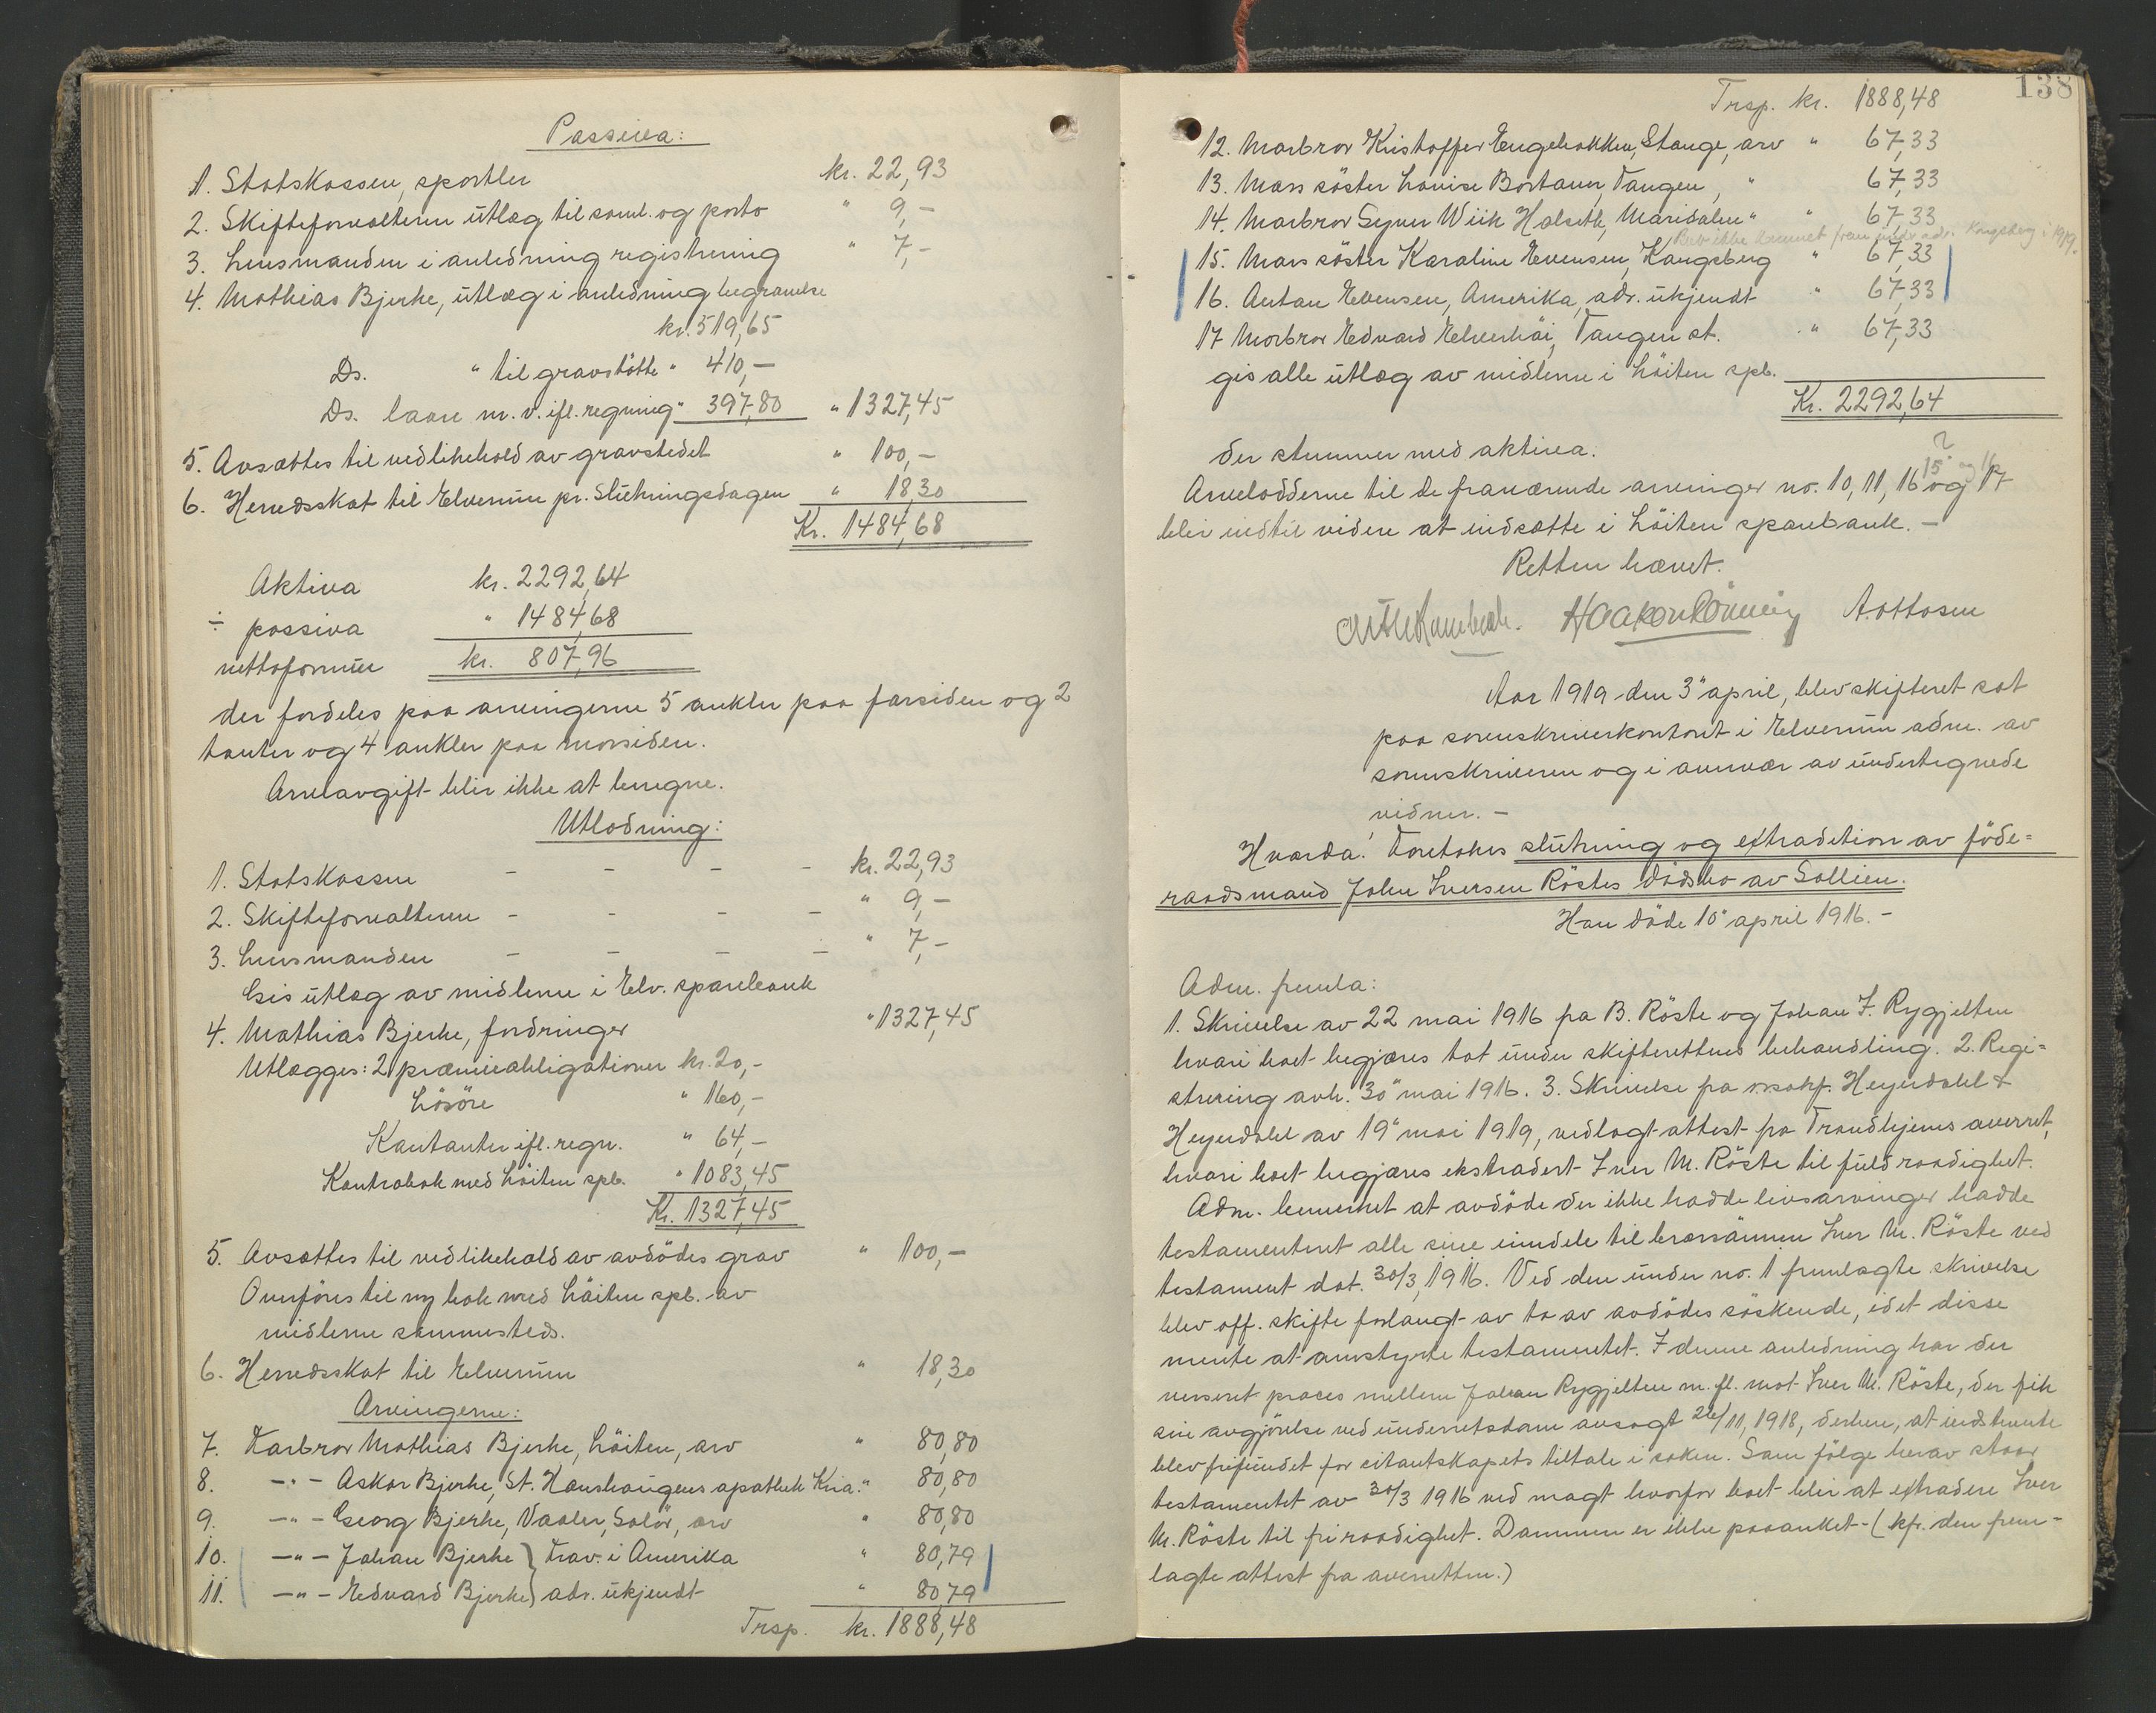 Passiva:
1. Statskassen, sportler kr. 22,93
2. Skifteforvalteren utlæg til saml. og porto " 9,-
3. Lensmanden i anledning registrering " 7,-
4. Mathias Bjerke, utlæg i anledning begravelse
kr. 519,65
Ds. " til gravstötte " 410,-
Ds. laan m. v. ifl. regning " 397,80 " 1327,45
5. Avsættes til vedlikehold av gravstedet " 100,-
6. Herredsskat til Elverum pr. Slutningsdagen " 18,30
Kr. 1484,68
Aktiva kr. 2292,64
÷ passiva " 1484,68
nettoformue kr. 807,96
der fordeles paa arvingerne 5 onkler paa farsiden og 2
tanter og 4 onkler paa morsiden.
Arveavgift blir ikke at beregne.
Utlodning:
1. Statskassen - - - - kr. 22,93
2. Skifteforvalteren - - - - " 9,-
3. Lensmanden - - - - " 7,-
Gis utlæg av midlerne i Elv. sparebank
4. Mathias Bjerke, fordringer " 1327,45
Utlægges: 2 præmieobligationer kr. 20,-
Lösöre " 160,-
Kontanter ifl. regn. " 64,-
Kontrabok med Löiten spb. " 1083,45
Kr. 1327,45
5. Avsættes til vedlikehold av avdödes grav " 100,-
Overföres til ny bok med Löiten spb. av
midlerne sammesteds.
6. Herredsskat til Elverum " 18,30
Arvingerne:
7. Farbror Mathias Bjerke, Löiten, arv " 80,80
8. -"- Oskar Bjerke, St. Hanshaugens apothek Kria. " 80,80
9. -"- Georg Bjerke, Vaaler, Solör, arv " 80,80
10. -"- Johan Bjerke } frav. i Amerika " 80,79
11. -"- Edvard Bjerke } adr. ukjendt " 80,79
Trsp. kr. 1888,48
138
Trsp. kr. 1888,48
12. Morbror Kristoffer Engebakken, Stange, arv " 67,33
13. Mors söster Lovise Bostaun, Tangen, " 67,33
14. Morbror Syver Wiik Holseth, Maridalen " " 67,33
Blev ikke fundet frem under adr. Kongsberg i 1919.
15. Mors söster Karoline Evensen, Kongsberg " 67,33
16. Anton Evensen, Amerika, adr. ukjendt " 67,33
17 Morbror Edvard Elverhöi, Tangen st. " 67,33
gis alle utlæg av midlerne i Löiten spb.
Kr. 2292,64
der stemmer med aktiva.
?
15 og 16
Arvelodderne til de fraværende arvinger no. 10, 11, 16 og 17
blir indtil videre at indsætte i Löiten sparebank. -
Retten hævet.
Haakon Rönning A. Ottosen
Aar 1919 den 3" april, blev skifteret sat
paa sorenskriverkontoret i Elverum adm. av
sorenskriveren og i overvær av undertegnede
vidner. -
Hvorda: Foretokes slutning og extradition av föde=
raadsmand John Iversen Röstes dödsbo av Sollien.
Han döde 10" april 1916. -
Adm. fremla:
1. Skrivelse av 22 mai 1916 fra B. Röste og Johan I. Rygjelten
hvori boet begjæres tat under skifterettens behandling. 2. Regi=
strering avh. 30" mai 1916. 3. Skrivelse fra o.r.sakf. Heyerdahl &
Heyerdahl av 19" mai 1919, vedlagt attest fra Trondhjems overret,
hvori boet begjæres ekstradert Iver M. Röste til fuld raadighet.
Adm. bemerket at avdöde der ikke hadde livsarvinger hadde
testamenteret alle sine eiendele til brorsönnen Iver M. Röste ved
testament dat. 30/3, 1916. Ved den under no. 1 fremlagte skrivelse
blev off. skifte forlangt av to av avdödes söskende, idet disse
mente at omstyrte testamentet. I denne anledning har der
verseret proces mellem Johan Rygjelten m. fl. mot Iver M. Röste, der fik
sin avgjörelse ved underretsdom avsagt 26/11, 1918, derhen, at indstevnte
blev frifundet for citantskapets tiltale i saken. Som fölge herav staar
testamentet av 30/3 1916 ved magt hvorfor boet blir at extradere Iver
M. Röste til fri raadighet. Dommen er ikke paaanket - (kfr. den frem-
lagte attest fra overretten.)